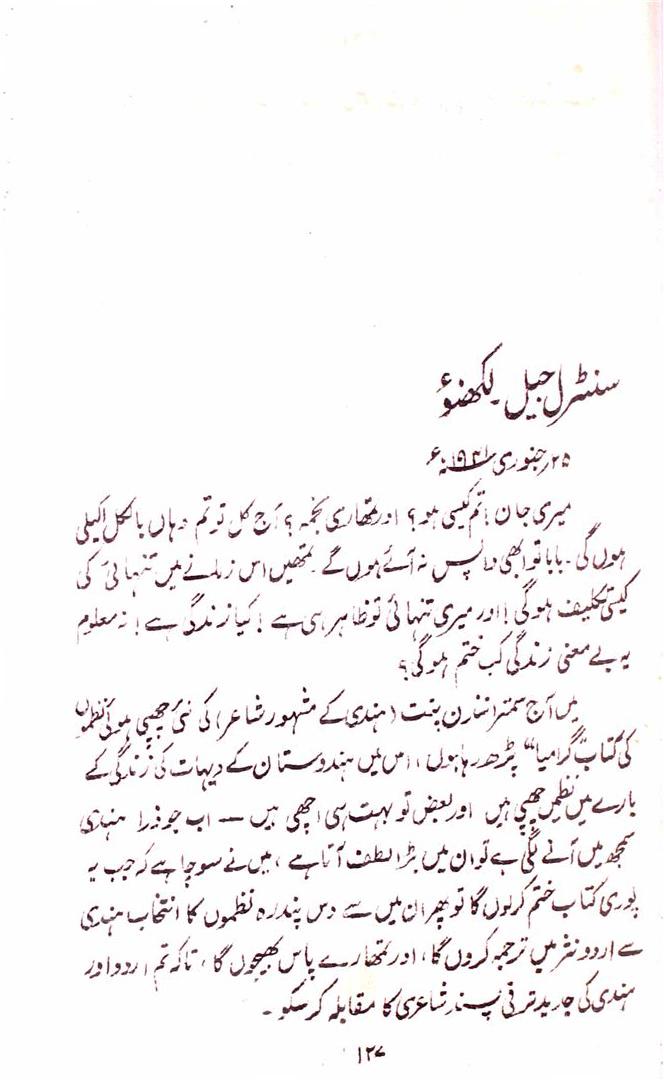 سنٹرل جیل۔ لکھنؤ
۲۵ر جنوری ۱۹۴۱ء
میری جان! تم کیسی ہو؟ اور تمھاری نجمہ؟ آج کل تو تم وہاں بالکل اکیلی
ہوں گی۔ بابا تو ابھی واپس نہ آئے ہوں گے۔ تمھیں اس زمانے میں تنہائی کی
کیسی تکلیف ہوگی! اور میری تنہائی تو ظاہر ہی ہے! کیا زندگی ہے! نہ معلوم
یہ بے معنی زندگی کب ختم ہوگی؟
میں آج سمترانندن پنت (ہندی کے مشہور شاعر) کی نئی چھپی ہوئی نظموں
کی کتاب "گرامیا" پڑھ رہا ہوں، اس میں ہندوستان کے دیہات کی زندگی کے
بارے میں نظمیں چھپی ہیں اور بعض تو بہت سی اچھی ہیں — اب جو ذرا ہندی
سمجھ میں آنے لگی ہے تو ان میں بڑا لطف آتا ہے، میں نے سوچا ہے کہ جب یہ
پوری کتاب ختم کرلوں گا تو پھر ان میں سے دس پندرہ نظموں کا انتخاب ہندی
سے اردو نثر میں ترجمہ کروں گا، اور تمھارے پاس بھیجوں گا، تاکہ تم اردو اور
ہندی کی جدید ترقی پسند شاعری کا مقابلہ کرسکو۔
۱۲۷